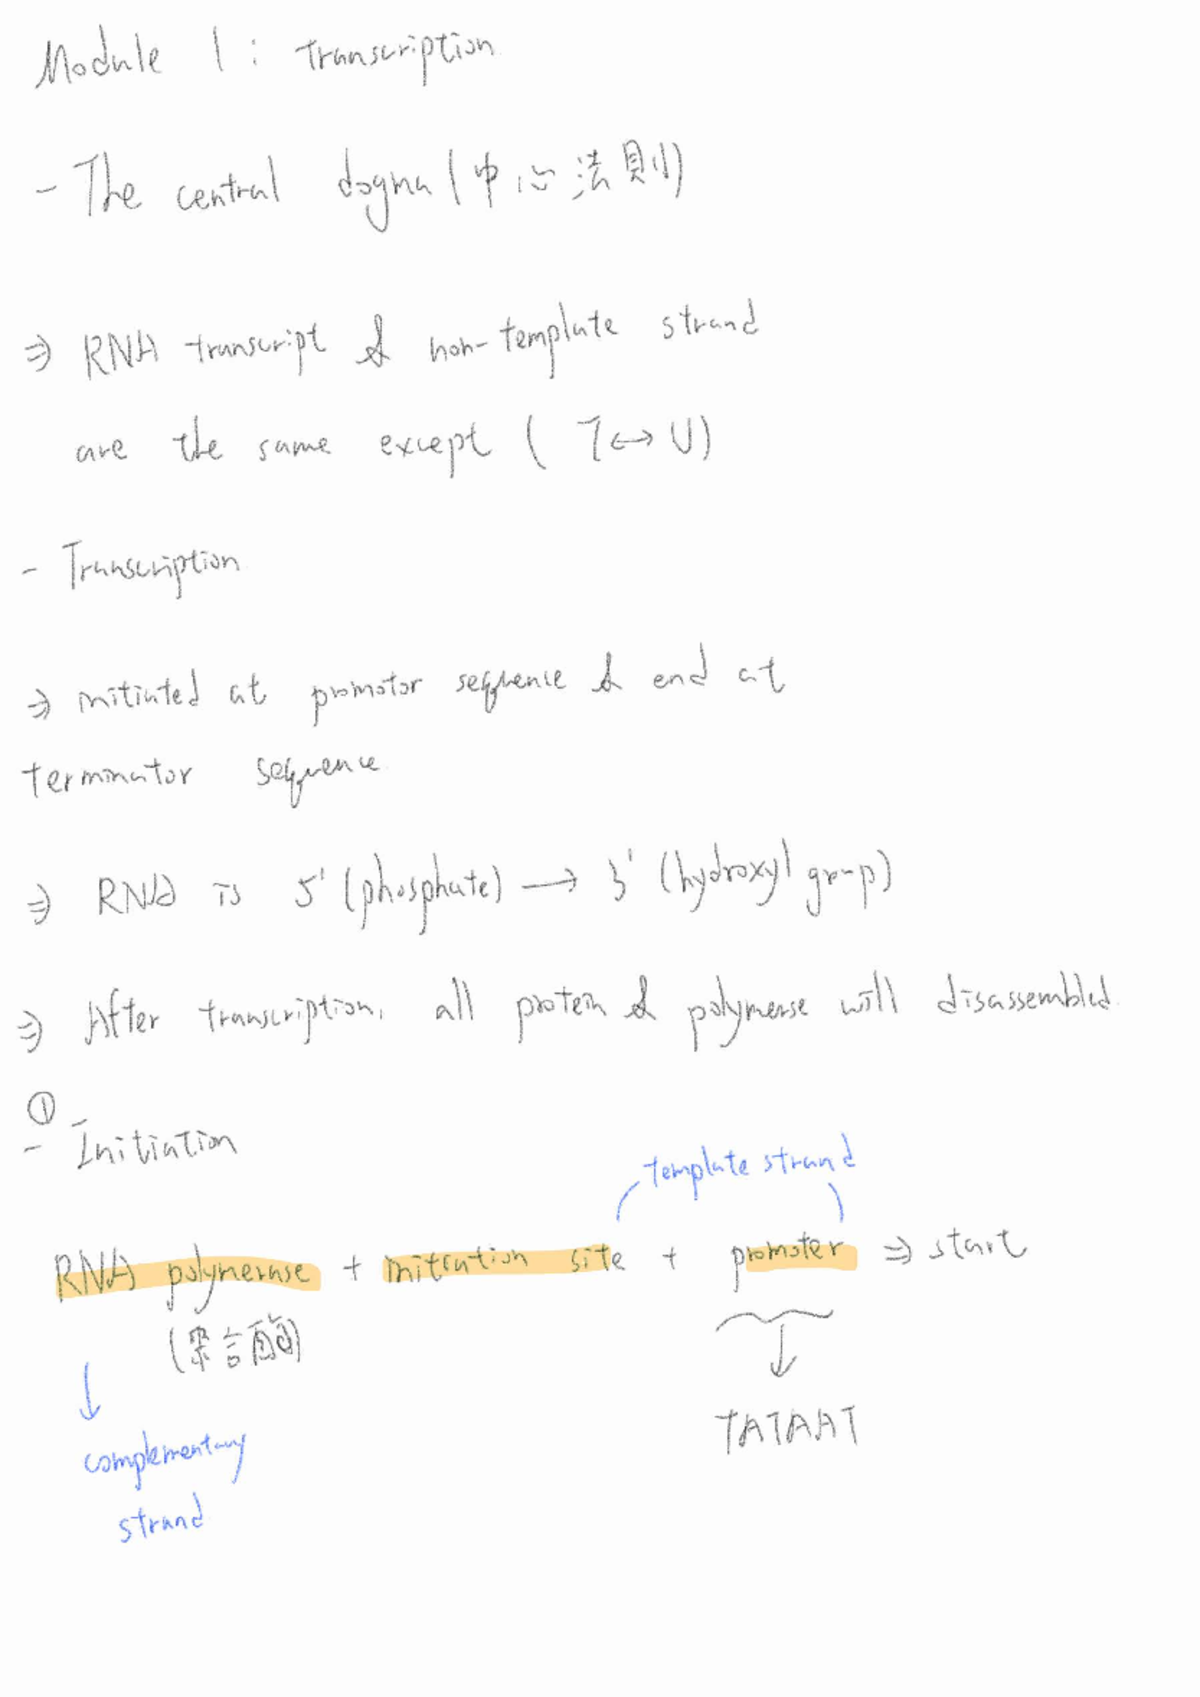 Module 1 : Transcription
- The central dogma (中心法則)
⇒ RNA transcript & non-template strand
are the same except ( T ↔ U)
- Transcription
⇒ initiated at promotor sequence & end at
terminator sequence
⇒ RNA is 5' (phosphate) → 3' (hydroxyl group)
⇒ After transcription, all protein & polymerse will disassembled.
①
- Initiation
template strand
RNA polymerase + initiation site + promoter ⇒ start
TATAAT
complementary
strand